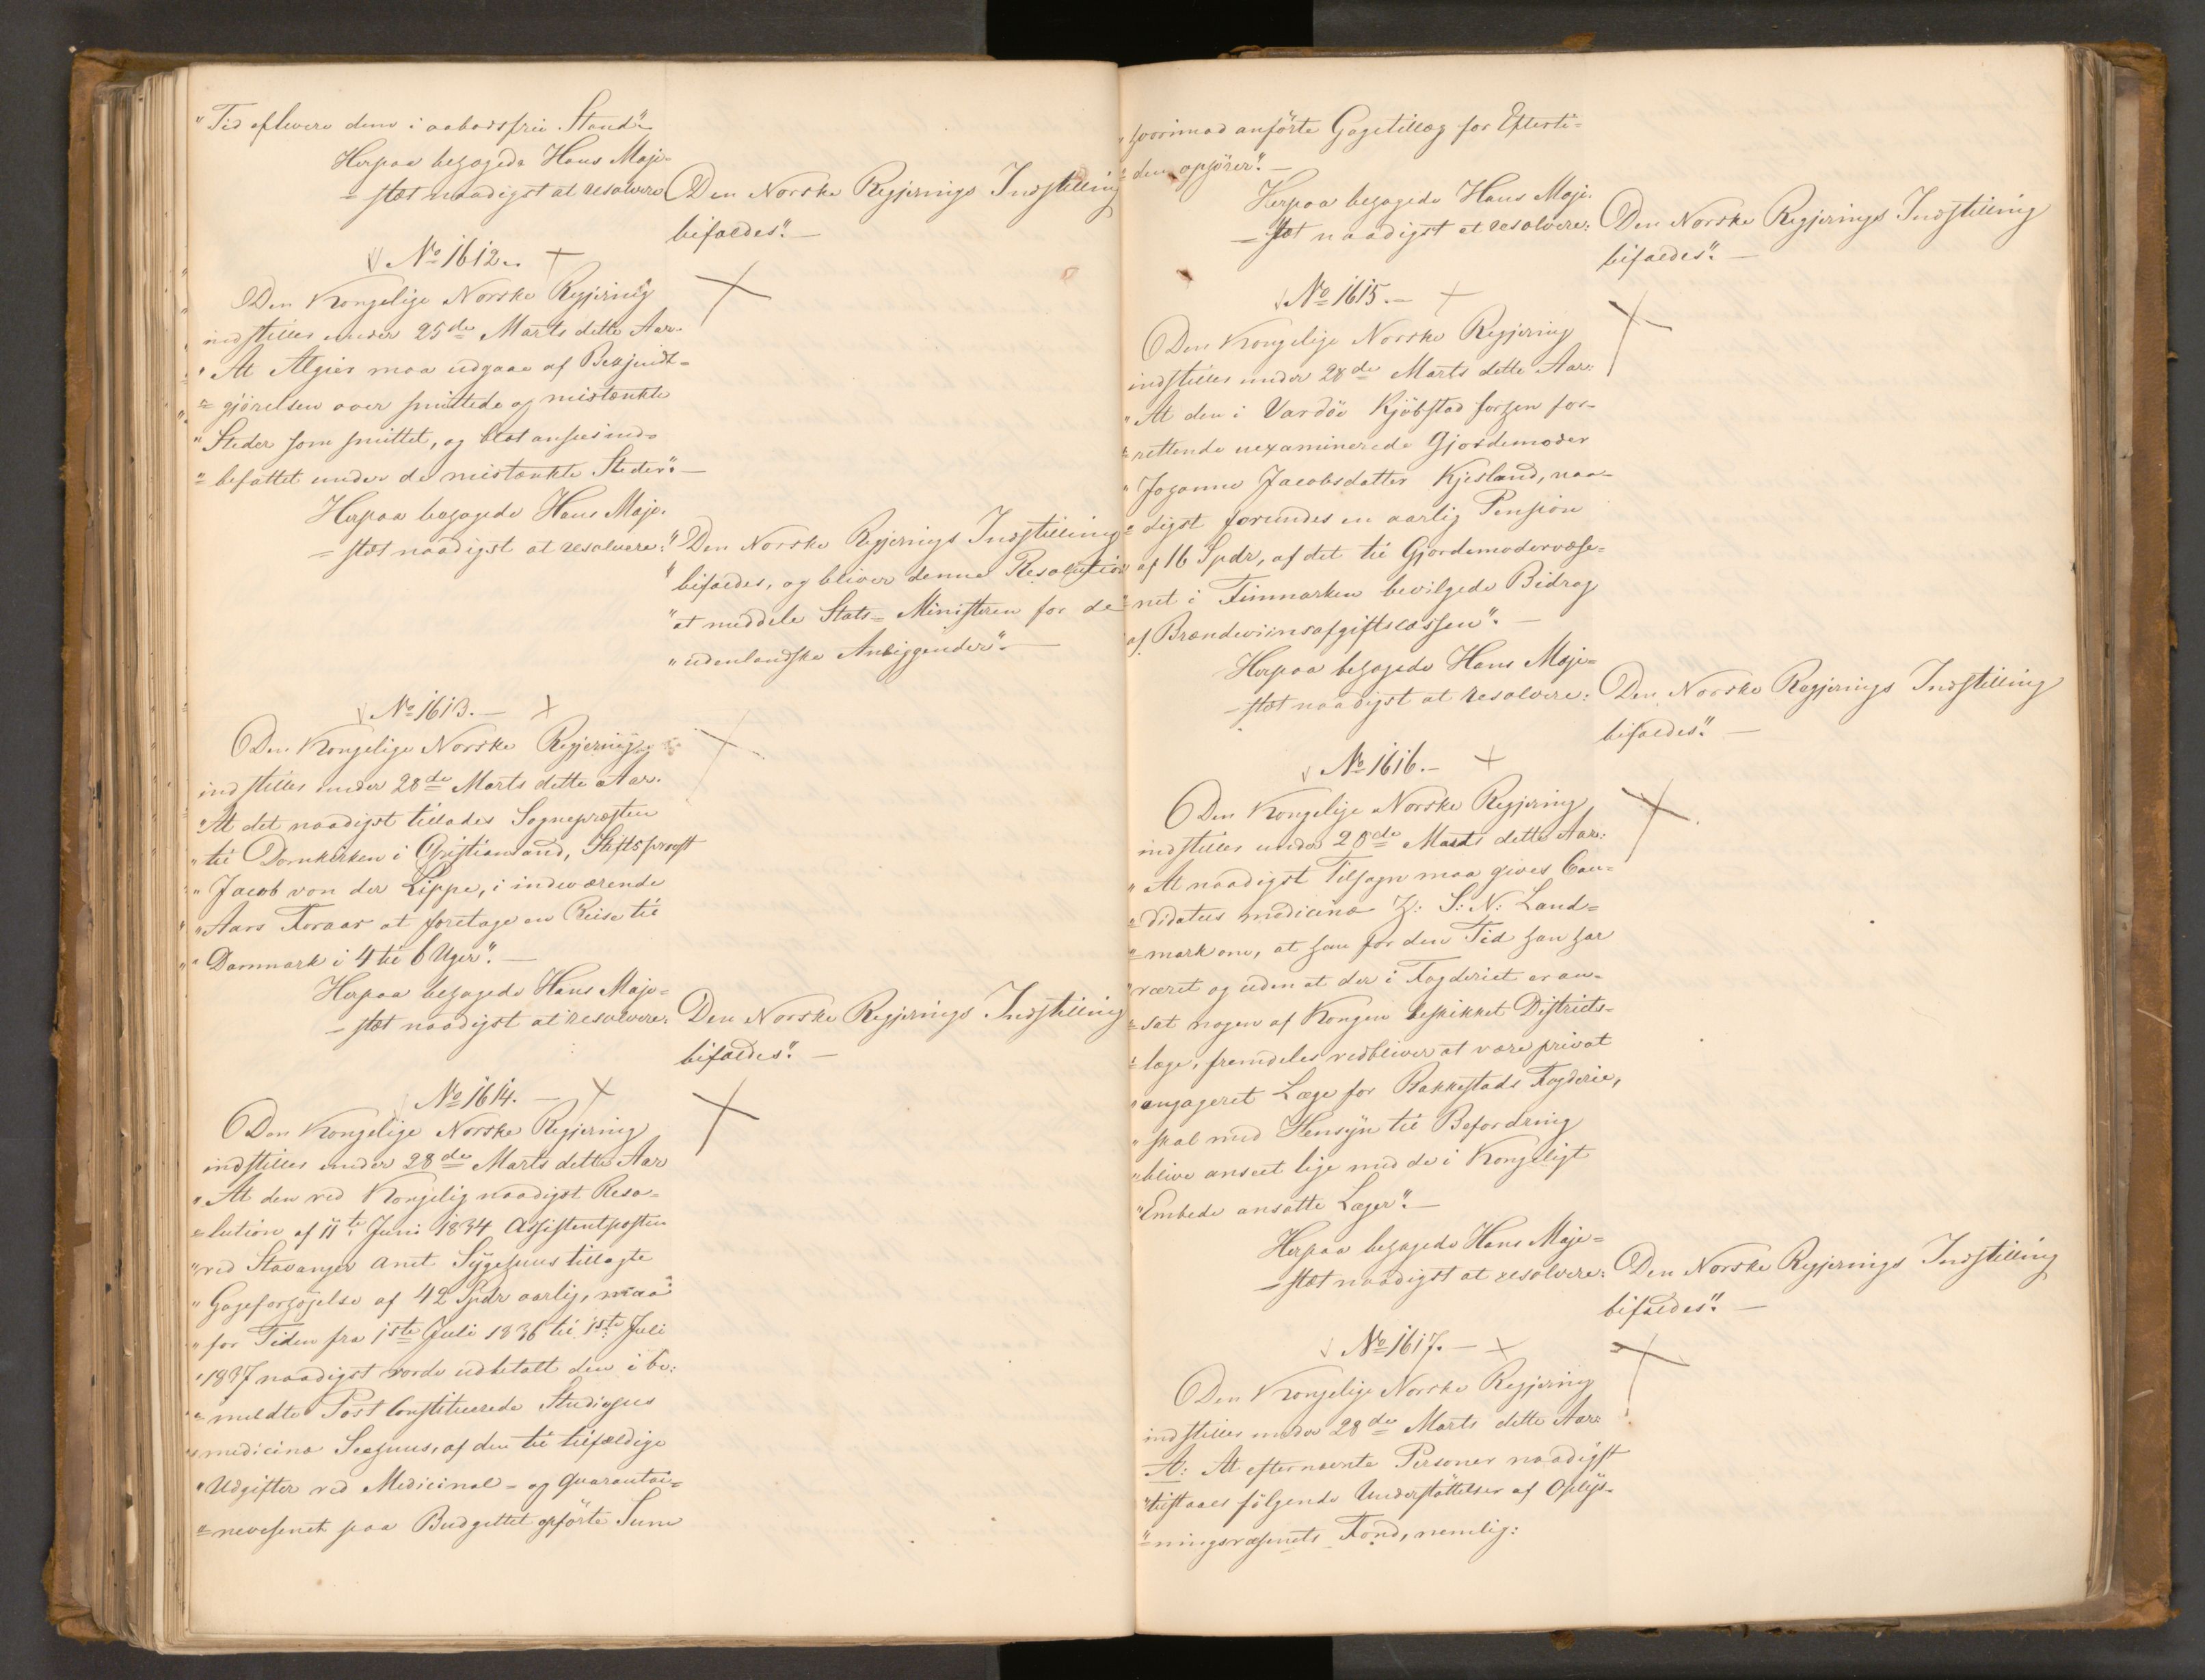 "Tid aflevere dem i aabodsfrie Stand".
Herpaa behagede Hans Maje-
=stæt naadigst at resolvere
Den Norske Regjerings Indstilling
bifaldes".—
No 1612.
Den Kongelige Norske Regjering
indstiller under 25de Marts dette Aar.
"At Algier maa udgaae af Bekjendt-
=gjörelsen over smittede og mistænkte
"Steder som smittet, og blot ansees ind-
=befattet under de mistænkte Steder".—
Herpaa behagede Hans Maje-
=stæt naadigst at resolvere:
"Den Norske Regjerings Indstilling
"bifaldes, og bliver denne Resolution
"at meddele Stats=Ministeren for de
"udenlandske Anliggender".—
No 1613.—
Den Kongelige Norske Regjering
indstiller under 28de Marts dette Aar.
"At det naadigst tillades Sognepræsten
"til Domkirken i Christiansand, Stiftsprovst
"Jacob von der Lippe, i indeværende
"Aars Foraar at foretage en Reise til
"Danmark i 4 til 6 Uger".—
Herpaa behagede Hans Maje=
=stæt naadigst at resolvere:
Den Norske Regjerings Indstilling
bifaldes".—
No 1614.—
Den Kongelige Norske Regjering
indstiller under 28de Marts dette Aar
"At den ved Kongelig naadigst Reso=
=lution af 11te Juni 1834 Assistentposten
"ved Stavanger Amt Sygehuus tillagte
"Gageforhöjelse af 42 Spdr aarlig, maa
"for Tiden fra 1ste Juli 1836 til 1ste Juli
"1837 naadigst vorde udbetalt den i be:
=meldte Post Constituerede Studiosus
"medicinæ Seehuus, af den til tilfældige
"Udgifter ved Medicinal- og Quarantai=
=nevesenet paa Budgettet opförte Sum
"hvorimod anförte Gagetillæg for Efterti=
=den ophörer".—
Herpaa behagede Hans Maje-
=stæt naadigst at resolvere:
Den Norske Regjerings Indstilling
bifaldes".—
No 1615.—
Den Kongelige Norske Regjering
indstiller under 28de Marts dette Aar:
"At den i Vardöe Kjöbstad forhen for-
=rettende uexaminerede Gjordemoder
"Johanne Jacobsdatter Kjesland, naa-
=digst forundes en aarlig Pension
af 16 Spdr, af det til Gjordemodervæse=
=net i Finmarken bevilgede Bidrag
af Brændeviinsafgiftscassen".—
Herpaa behagede Hans Maje=
=stæt naadigst at resolvere:
Den Norske Regjerings Indstilling
bifaldes".—
No 1616.—
Den Kongelige Norske Regjering
indstiller under 28de Marts dette Aar:
"At naadigst Tilsagn maa gives Can=
=didatus medicinæ H: S: N: Land=
=mark om, at han for den Tid han har
"været og uden at der i Fogderiet er an-
=sat nogen af Kongen beskikket Districts-
=læge, fremdeles vedbliver at være privat
"engageret Læge for Rakkestads Fogderie,
"skal med Hensyn til Befordring
"blive anseet lige med de i Kongeligt
"Embede ansatte Læger".—
Herpaa behagede Hans Maje=
=stæt naadigst at resolvere:
Den Norske Regjerings Indstilling
bifaldes".—
No 1617.—
Den Kongelige Norske Regjering
indstiller under 28de Marts dette Aar:
A: At efternævnte Personer naadigst
"tilstaaes fölgende Understöttelser af Oplys-
=ningsvæsenets Fond, nemlig: